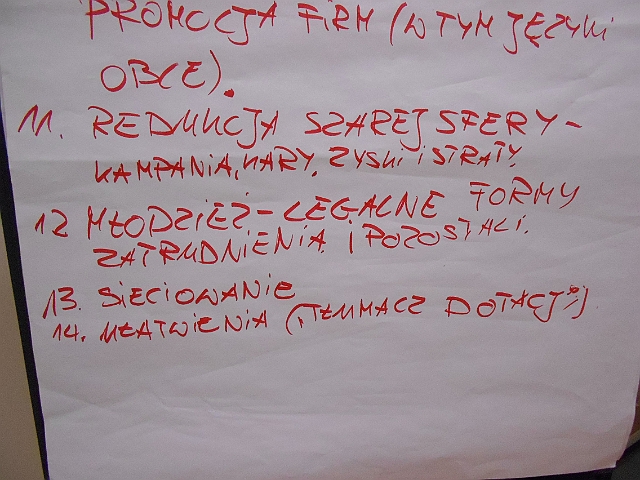 PROMOCJA FIRM (W TYM JĘZYKI
OBCE).
11. REDUKCJA SZAREJ SFERY-
KAMPANIA, KARY, ZYSKI I STRATY.
12 MŁODZIEŻ-LEGALNE FORMY
ZATRUDNIENIA I POZOSTALI.
13. SIECIOWANIE
14. UŁATWIENIA („TŁUMACZ DOTACJI")